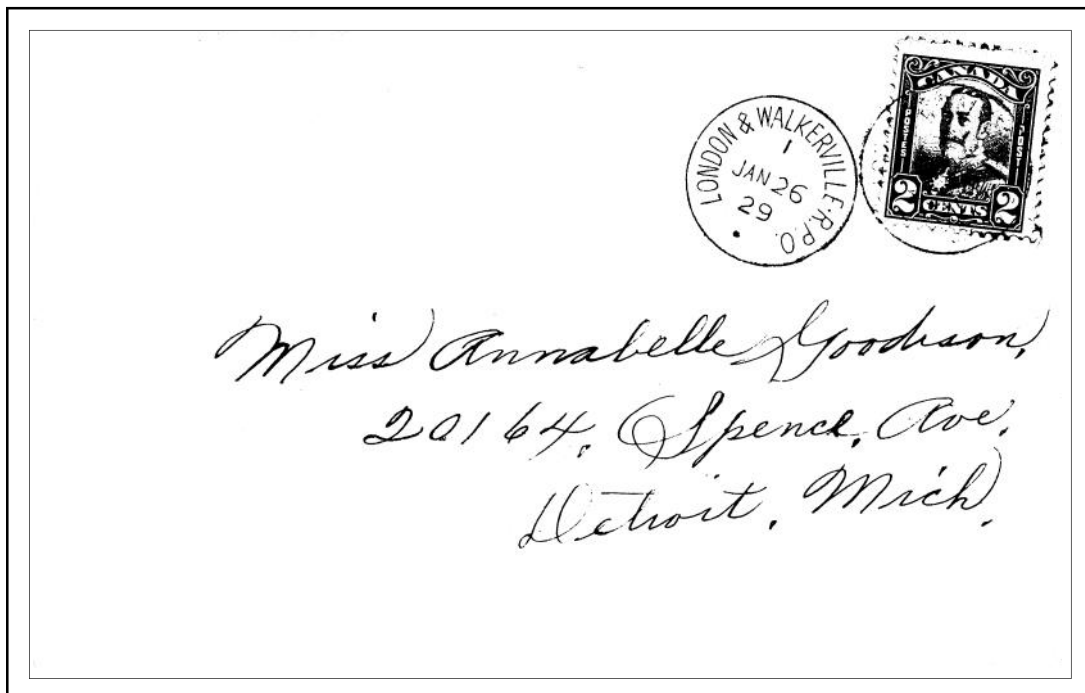 LONDON & WALKERVILLE. R.P.O.
1
JAN 26
29
CANADA
POSTES POSTES
2 CENTS 2
Miss Annabelle Goodison,
20164, Spence, Ave,
Detroit, Mich.